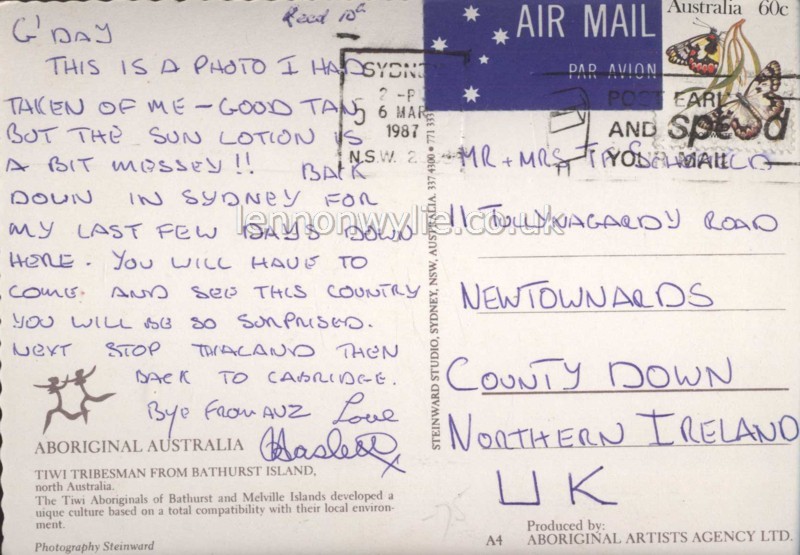 Recd 10th
G'DAY
THIS IS A PHOTO I HAD
TAKEN OF ME – GOOD TAN
BUT THE SUN LOTION IS
A BIT MESSEY!! BACK
DOWN IN SYDNEY FOR
MY LAST FEW DAYS DOWN
HERE. YOU WILL HAVE TO
COME AND SEE THIS COUNTRY
YOU WILL BE SO SURPRISED.
NEXT STOP THAILAND THEN
BACK TO CABRIDGE.
BYE FROM AUZ Love
Haslett x
ABORIGINAL AUSTRALIA
TIWI TRIBESMAN FROM BATHURST ISLAND,
north Australia.
The Tiwi Aboriginals of Bathurst and Melville Islands developed a
uique culture based on a total compatibility with their local environ-
ment.
Photography Steinward
STEINWARD STUDIO, SYDNEY, NSW, AUSTRALIA. 337 4300 • 771 333
AIR MAIL
PAR AVION
Australia 60c
SYDNEY
2 -P
6 MAR
1987
N.S.W. 2
POST EARLY
AND speed
YOUR MAIL
MR + MRS
11 TULLYNAGARDY ROAD
NEWTOWNARDS
COUNTY DOWN
NORTHERN IRELAND
UK
-75
Produced by:
A4 ABORIGINAL ARTISTS AGENCY LTD.
lennonwylie.co.uk